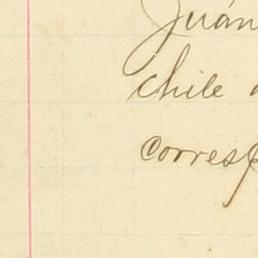 Juan
chile
corresp